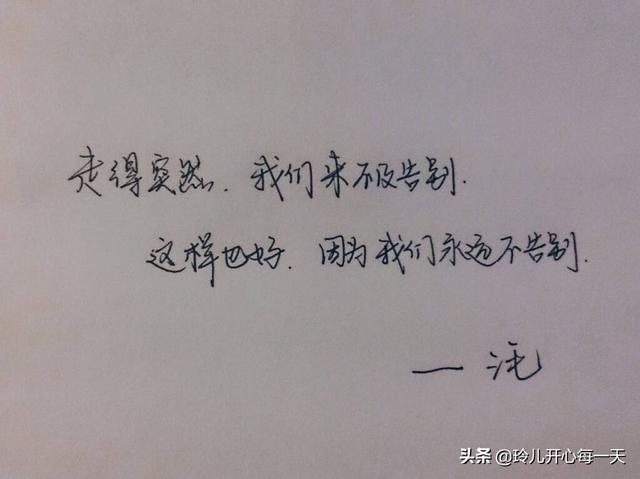 走得突然.我们来不及告别.
这样也好.因为我们永远不告别.
—
头条@玲儿开心每一天